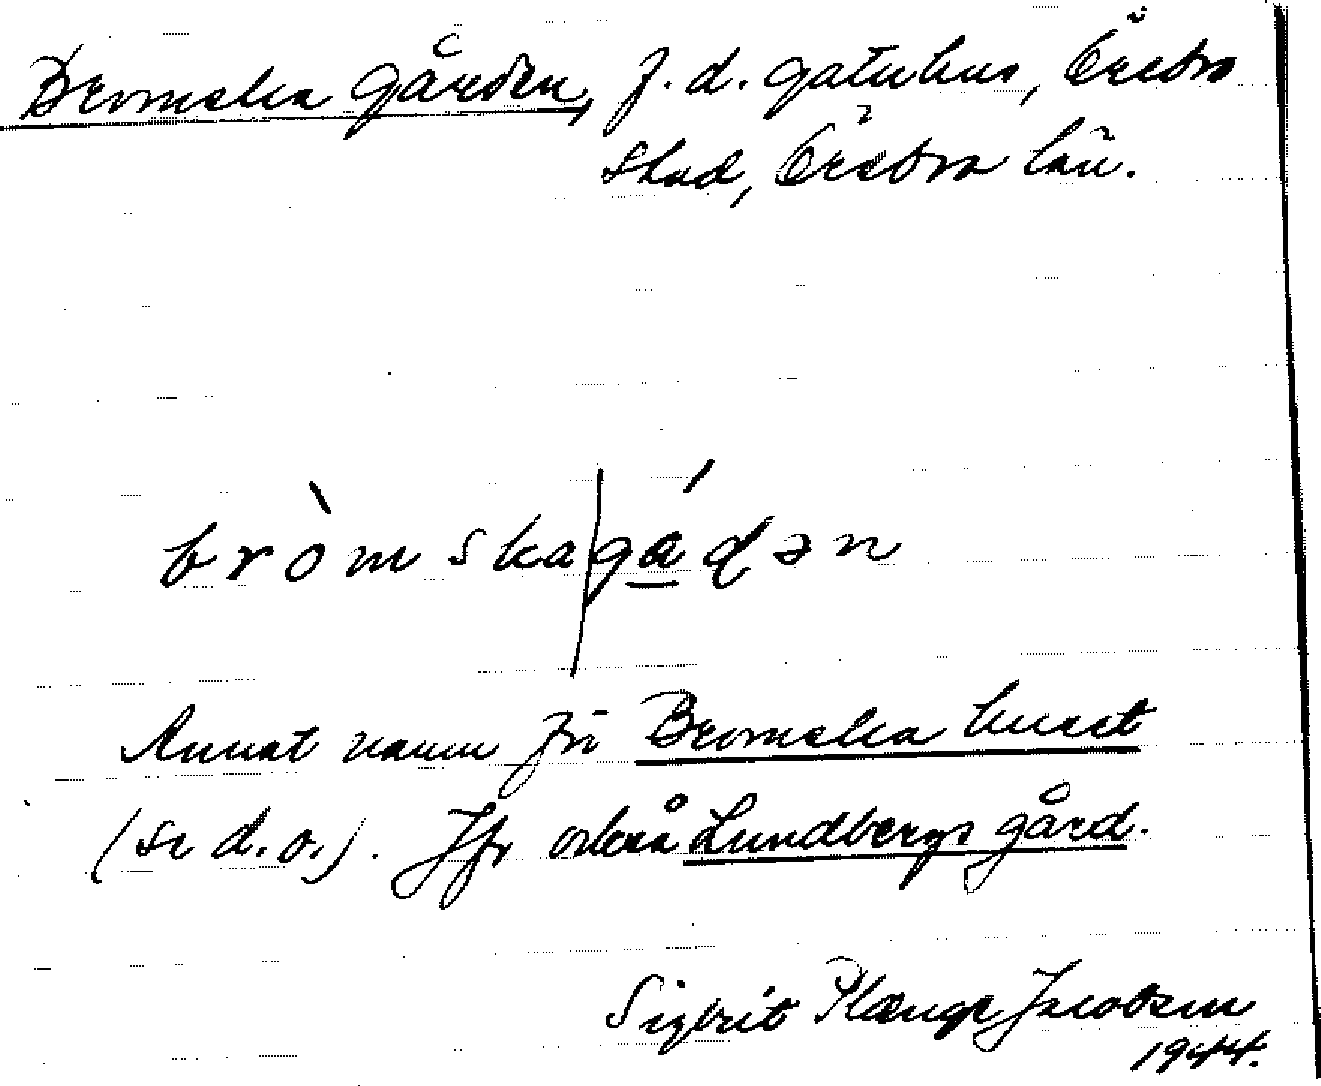 Bromska gården, f. d. gatuhus, Örebro
stad, Örebro län.
bròmska|gá̱ḍən
Annat namn för Bromska huset
(se d. o.). Jfr också Lundbergs gård.
Sigbrit Plænge Jacobson
1944.